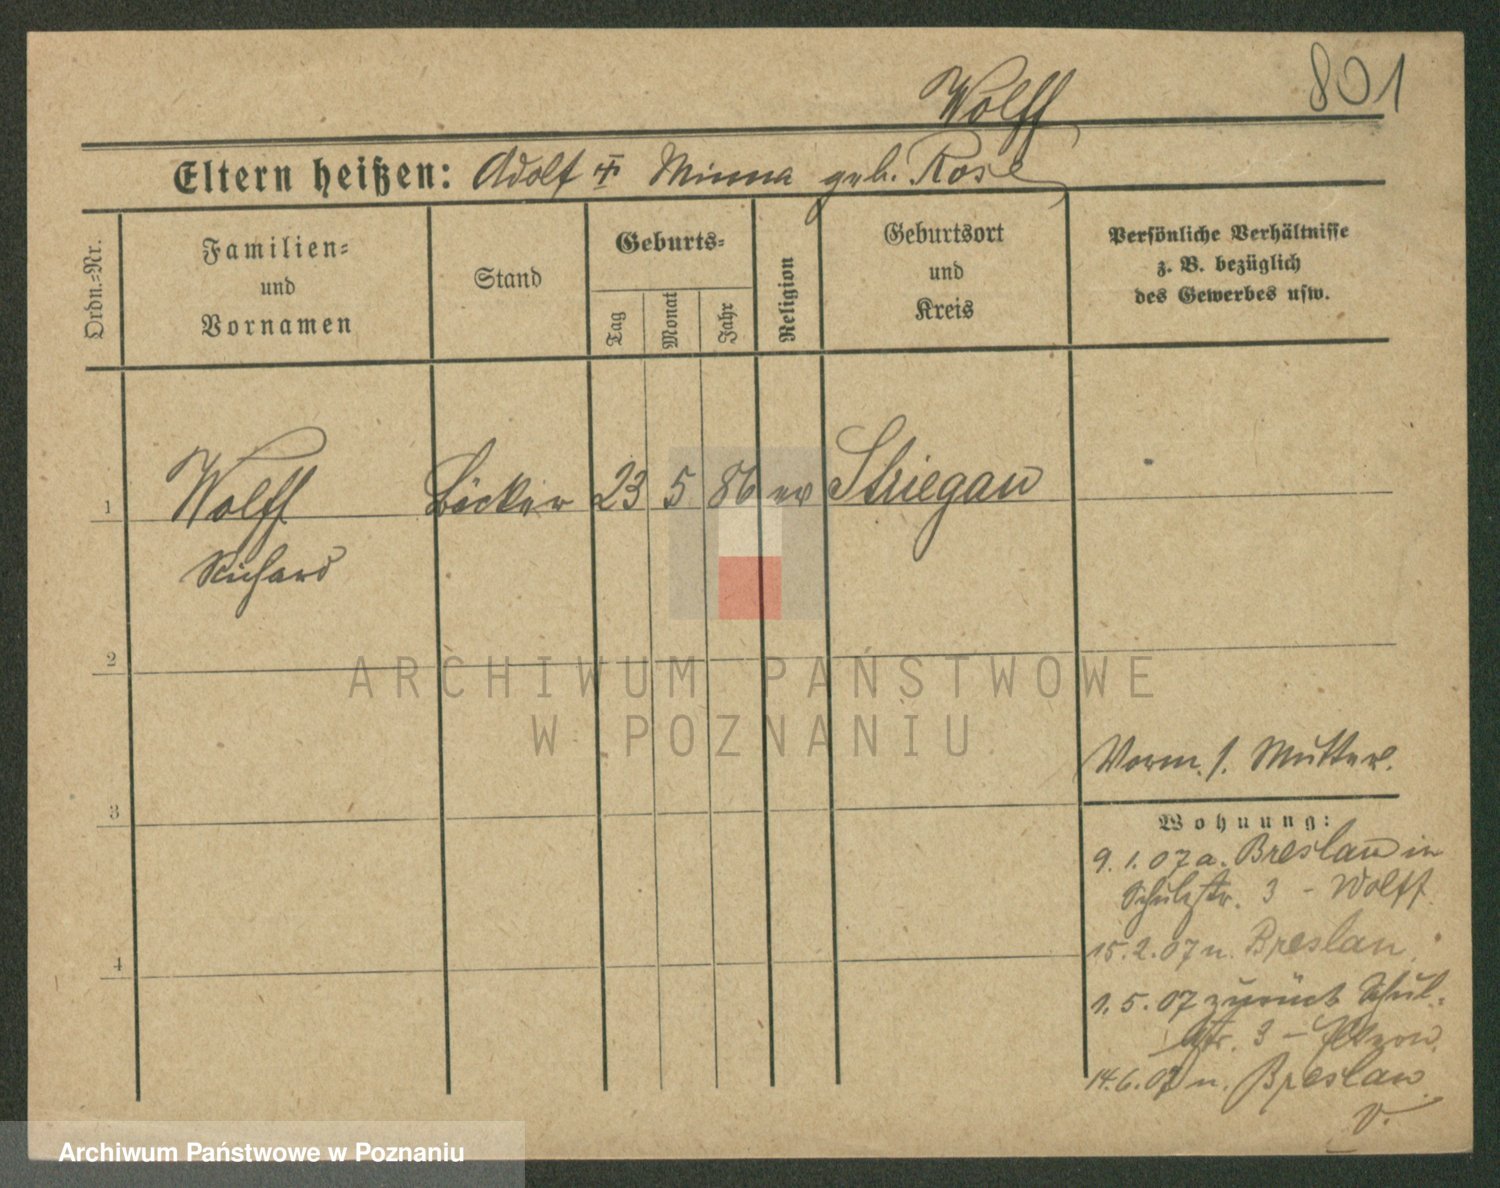 801
Wolff
Eltern heißen: Adolf ✝ Minna geb. Rose
Ordn.-Nr.
Familien-
und
Vornamen
Stand
Geburts-
Tag
Monat
Jahr
Religion
Geburtsort
und
Kreis
Persönliche Verhältnisse
z. B. bezüglich
des Gewerbes usw.
1 Wolff Bäcker 23 5 86 ev Striegau
Richard
2
3
4
Vorm. s. Mutter.
Wohnung:
9.1.07 a. Breslau in
Schulzstr. 3 - Wolff.
15.2.07 n. Breslau.
1.5.07 zurück Schul-
str. 3 - Eltern.
14.6.07 n. Breslau
v.
ARCHIWUM PAŃSTWOWE
W POZNANIU
Archiwum Państwowe w Poznaniu